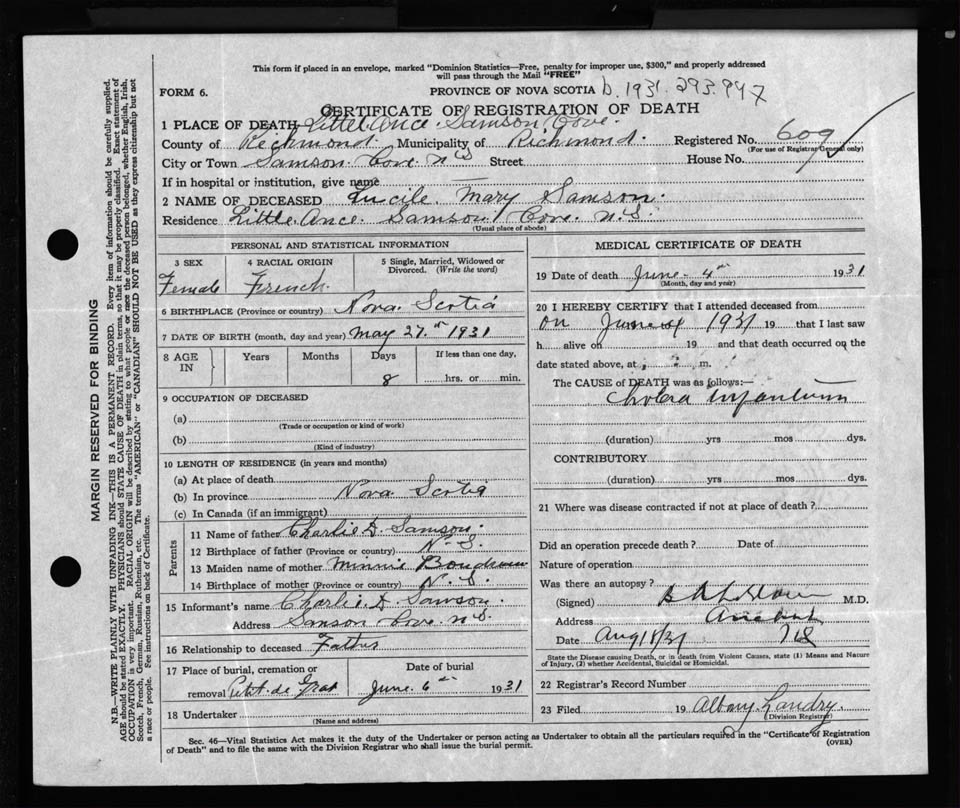 This form if placed in an envelope, marked "Dominion Statistics—Free, penalty for improper use, $300," and properly addressed
will pass through the Mail "FREE"
FORM 6.
PROVINCE OF NOVA SCOTIA b. 1931. 293.947
CERTIFICATE OF REGISTRATION OF DEATH
1 PLACE OF DEATH Littel Ance. Samson Cove.
County of Richmond. Municipality of Richmond. Registered No. 609
(For use of Registrar General only)
City or Town Samson Cove N S Street House No.
If in hospital or institution, give name
2 NAME OF DECEASED Lucile Mary Samson.
Residence Little Ance. Samson Cove. N.S.
(Usual place of abode)
PERSONAL AND STATISTICAL INFORMATION
3 SEX
Female
4 RACIAL ORIGIN
French.
5 Single, Married, Widowed or
Divorced. (Write the word)
6 BIRTHPLACE (Province or country) Nova. Scotia
7 DATE OF BIRTH (month, day and year) May 27.th 1931
8 AGE
IN
Years Months Days If less than one day,
8 hrs. or min.
9 OCCUPATION OF DECEASED
(a)
(Trade or occupation or kind of work)
(b)
(Kind of industry)
10 LENGTH OF RESIDENCE (in years and months)
(a) At place of death
(b) In province Nova. Scotia
(c) In Canada (if an immigrant)
Parents
11 Name of father Charlie D. Samson.
12 Birthplace of father (Province or country) N. S.
13 Maiden name of mother Minnie Boudreau
14 Birthplace of mother (Province or country) N. S.
15 Informant's name Charlie D Samson.
Address Samson Cove. N.S.
16 Relationship to deceased Father
17 Place of burial, cremation or
removal Petit de Grat
Date of burial
June. 6th 1931
18 Undertaker
(Name and address)
MEDICAL CERTIFICATE OF DEATH
19 Date of death June- 4th 1931
(Month, day and year)
20 I HEREBY CERTIFY that I attended deceased from
on June 4 1931 19 that I last saw
h alive on 19 and that death occurred on the
date stated above, at m.
The CAUSE of DEATH was as follows:—
Cholera Infantum
(duration) yrs mos dys.
CONTRIBUTORY
(duration) yrs mos dys.
21 Where was disease contracted if not at place of death?
Did an operation precede death? Date of
Nature of operation
Was there an autopsy?
(Signed) M.D.
Address Arichat
Date Aug 18/31
State the Disease causing Death, or in death from Violent Causes, state (1) Means and Nature
of Injury, (2) whether Accidental, Suicidal or Homicidal.
22 Registrar's Record Number
23 Filed 19 Albany Landry.
(Division Registrar)
Sec. 46—Vital Statistics Act makes it the duty of the Undertaker or person acting as Undertaker to obtain all the particulars required in the "Certificate of Registration
of Death" and to file the same with the Division Registrar who shall issue the burial permit.
(OVER)
MARGIN RESERVED FOR BINDING
N.B.—WRITE PLAINLY WITH UNFADING INK—THIS IS A PERMANENT RECORD. Every item of information should be carefully supplied.
AGE should be stated EXACTLY. PHYSICIANS should STATE CAUSE OF DEATH in plain terms, so that it may be properly classified. Exact statement of
OCCUPATION is very important. RACIAL ORIGIN will be described by stating to what people or race the deceased person belonged, whether English, Irish,
Scotch, French, German, Russian, Ruthenian, etc. The terms "AMERICAN" or "CANADIAN" SHOULD NOT BE USED as they express citizenship but not
a race or people. See instructions on back of Certificate.